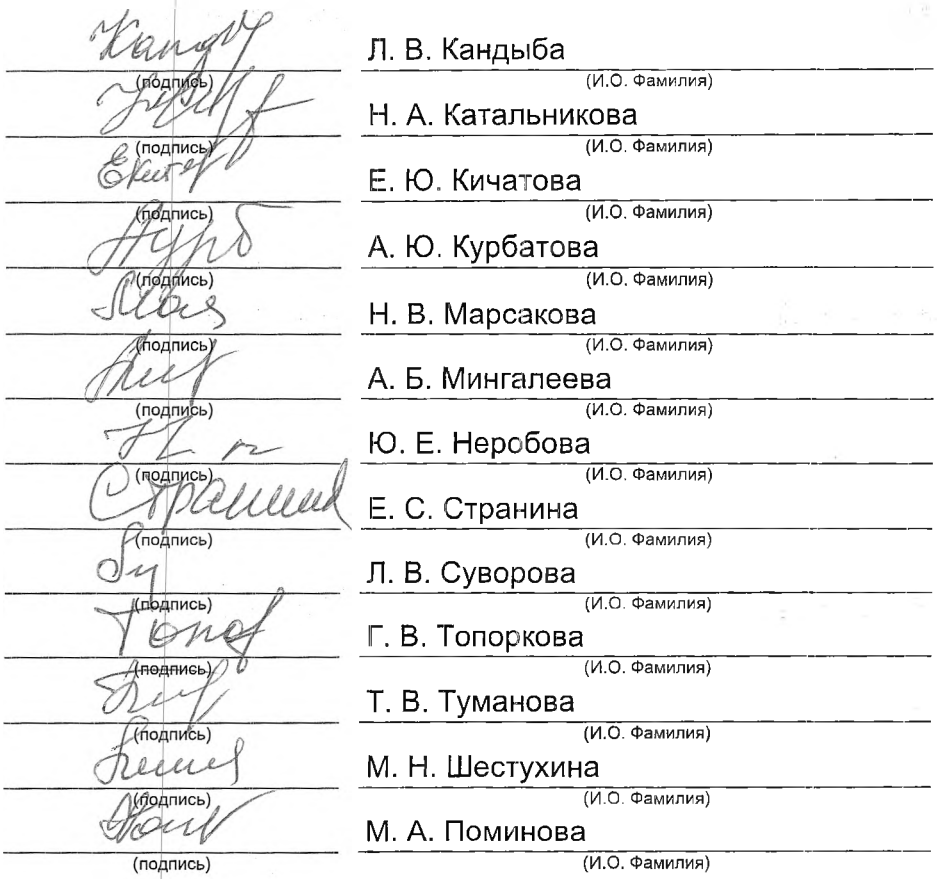 Л. В. Кандыба
(подпись) (И.О. Фамилия)
Н. А. Катальникова
(подпись) (И.О. Фамилия)
Е. Ю. Кичатова
(подпись) (И.О. Фамилия)
А. Ю. Курбатова
(подпись) (И.О. Фамилия)
Н. В. Марсакова
(подпись) (И.О. Фамилия)
А. Б. Мингалеева
(подпись) (И.О. Фамилия)
Ю. Е. Неробова
(подпись) (И.О. Фамилия)
Е. С. Странина
(подпись) (И.О. Фамилия)
Л. В. Суворова
(подпись) (И.О. Фамилия)
Г. В. Топоркова
(подпись) (И.О. Фамилия)
Т. В. Туманова
(подпись) (И.О. Фамилия)
М. Н. Шестухина
(подпись) (И.О. Фамилия)
М. А. Поминова
(подпись) (И.О. Фамилия)